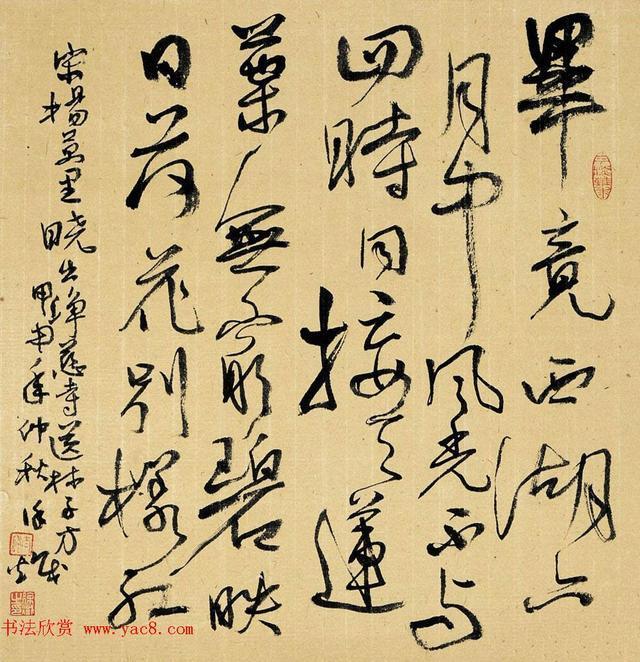 畢竟西湖六
月中風光不与
四時同接天蓮
葉無窮碧映
日荷花别樣紅
宋楊萬里曉出净慈寺送林子方
甲申年仲秋
书法欣赏 www.yac8.com